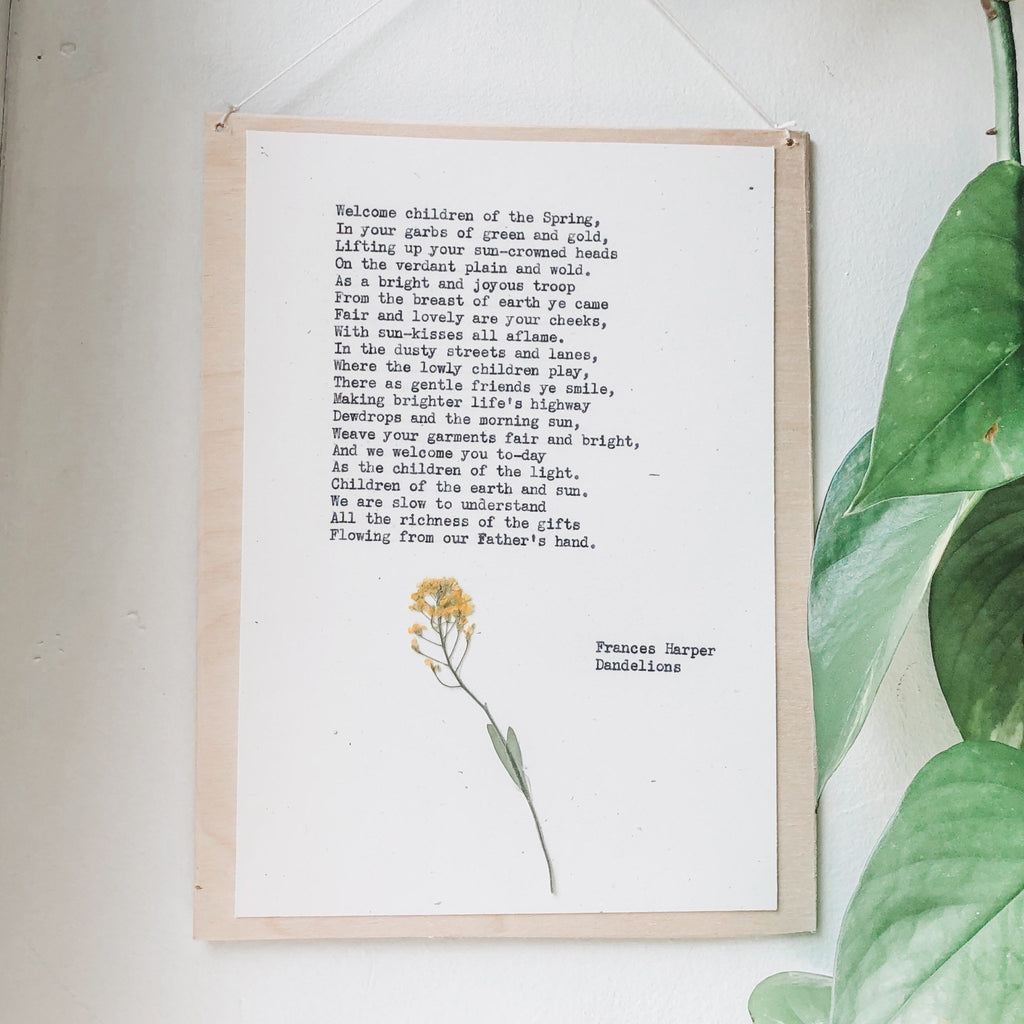 Welcome children of the Spring,
In your garbs of green and gold,
Lifting up your sun-crowned heads
On the verdant plain and wold.
As a bright and joyous troop
From the breast of earth ye came
Fair and lovely are your cheeks,
With sun-kisses all aflame.
In the dusty streets and lanes,
Where the lowly children play,
There as gentle friends ye smile,
Making brighter life's highway
Dewdrops and the morning sun,
Weave your garments fair and bright,
And we welcome you to-day
As the children of the light.
Children of the earth and sun.
We are slow to understand
All the richness of the gifts
Flowing from our Father's hand.
Frances Harper
Dandelions